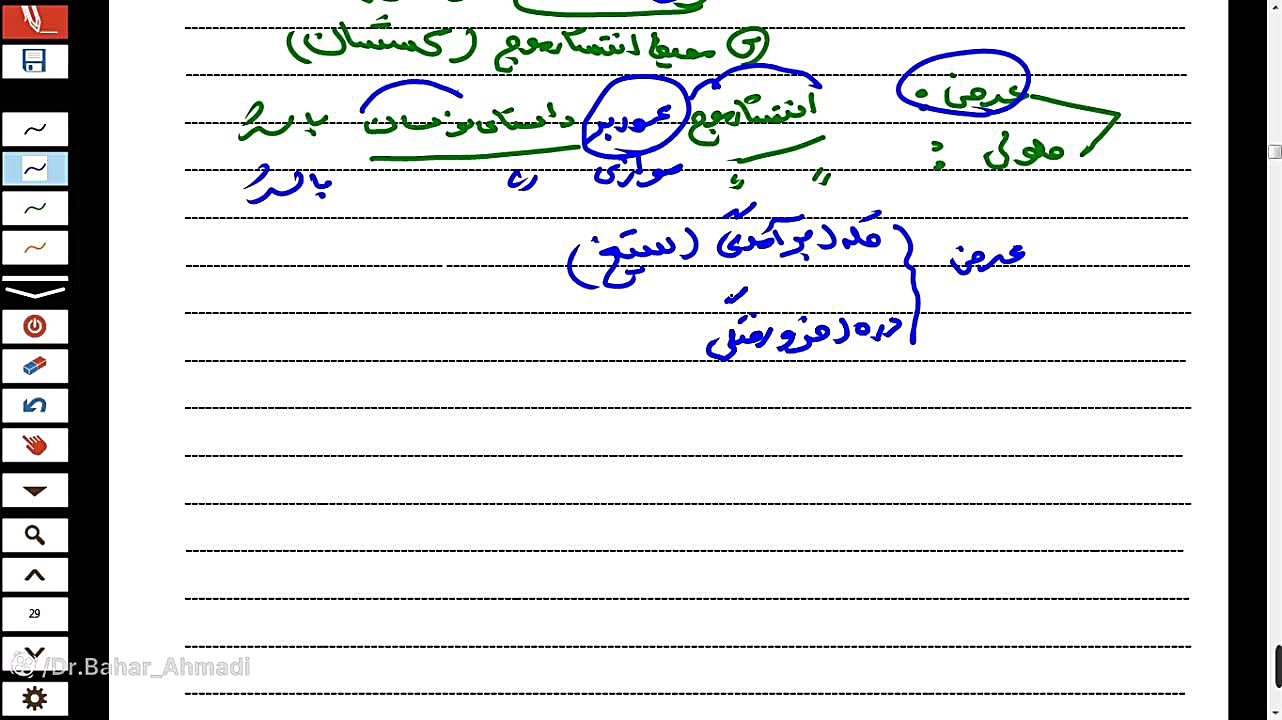 ③ محیط انتشار موج (کشسان)
عرضی : انتشار موج عمود بر راستای نوسان باشد
طولی : " " موازی " باشد
عرضی { قله (برآمدگی (ستیغ)
دره (فرورفتگی
29
/Dr.Bahar_Ahmadi